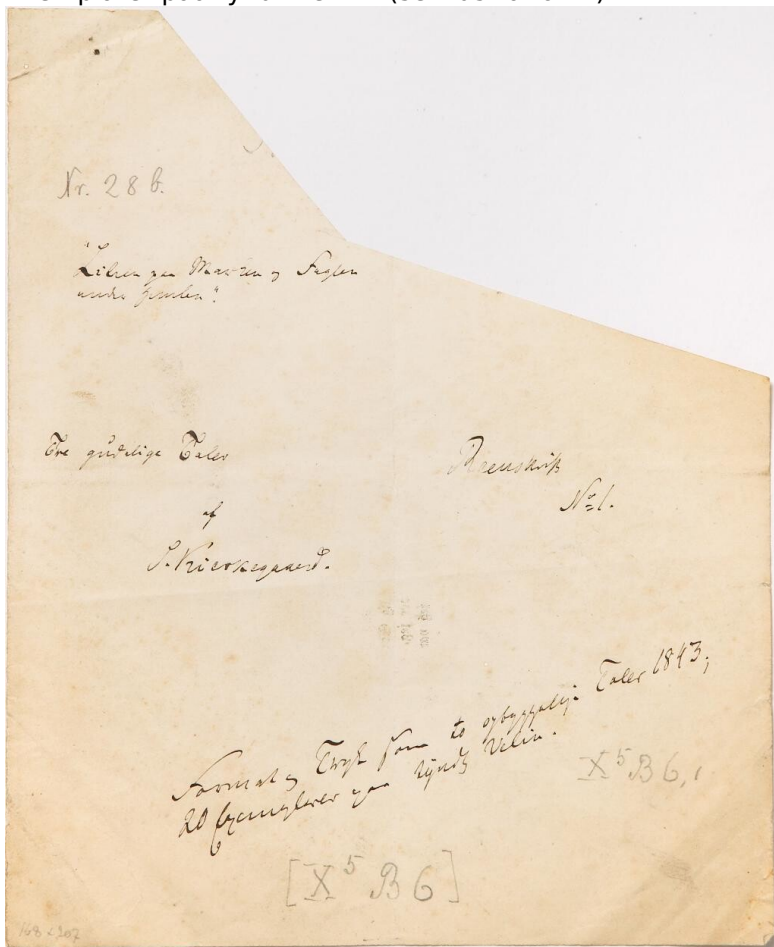 Nr. 28 b.
"Lilien paa Marken og Fuglen
under Himlen".
Tre gudelige Taler
af
S. Kierkegaard.
Reenskrift
No 1.
Format og Tryk som to opbyggelige Taler 1843;
20 Exemplarer paa tyndt Velin.
X 5 B 6, 1
[X 5 B 6]
168 x 207